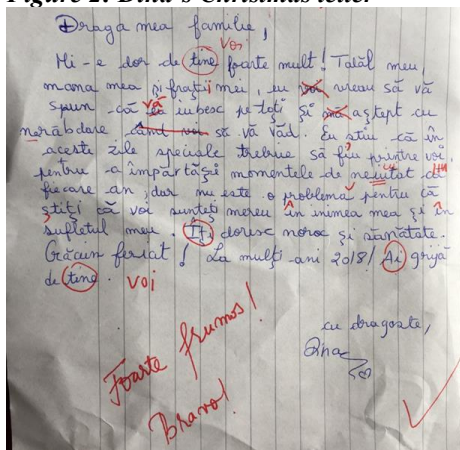 Figure 2: Dina's Christmas letter
Draga mea familie,
voi
Mi-e dor de tine foarte mult! Tatăl meu,
mama mea și frații mei, eu voi vreau să vă
spun că vă iubesc pe toți și mă aștept cu
nerăbdare când voi să vă văd. Eu știu că în
aceste zile speciale trebuie să fiu printre voi,
pentru a împărtăși momentele de neuitat
fiecare an, dar nu este o problema pentru că
știți că voi sunteți mereu în inimea mea și în
sufletul meu. Îți doresc noroc și sănătate.
Crăcun feriat! La mulți ani 2018! Ai grijă
de tine. voi
cu dragoste,
Dina
Foarte frumos!
Bravo!